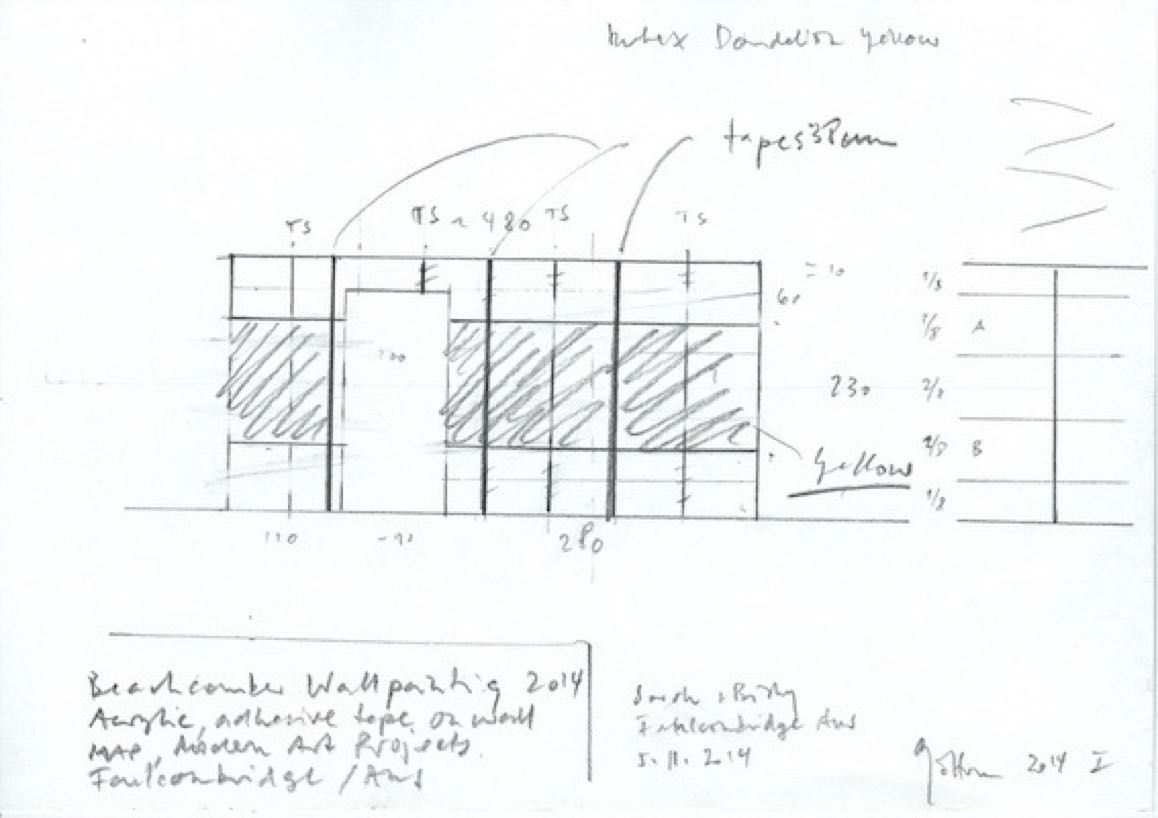 Dandelion Yellow
tapes 38mm
TS TS ~ 480 TS TS
= 10
60
1/8
1/8 A
200
230 2/8
2/8 B
Yellow
1/8
110 -90 280
Beachcomber Wallpainting 2014
Acrylic, adhesive tape, on wall
MAP, Modern Art Projects.
Faulconbridge / Aus
Sarah +
Faulconbridge Aus
5. 11. 2014
2014 I